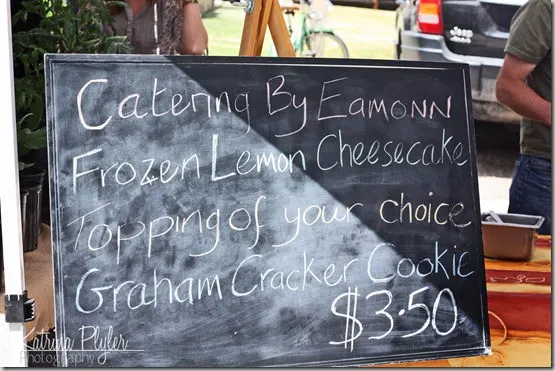 Catering By Eamonn
Frozen Lemon Cheesecake
Topping of your choice
Graham Cracker Cookie
$3.50
Katrina Plyler
Photography